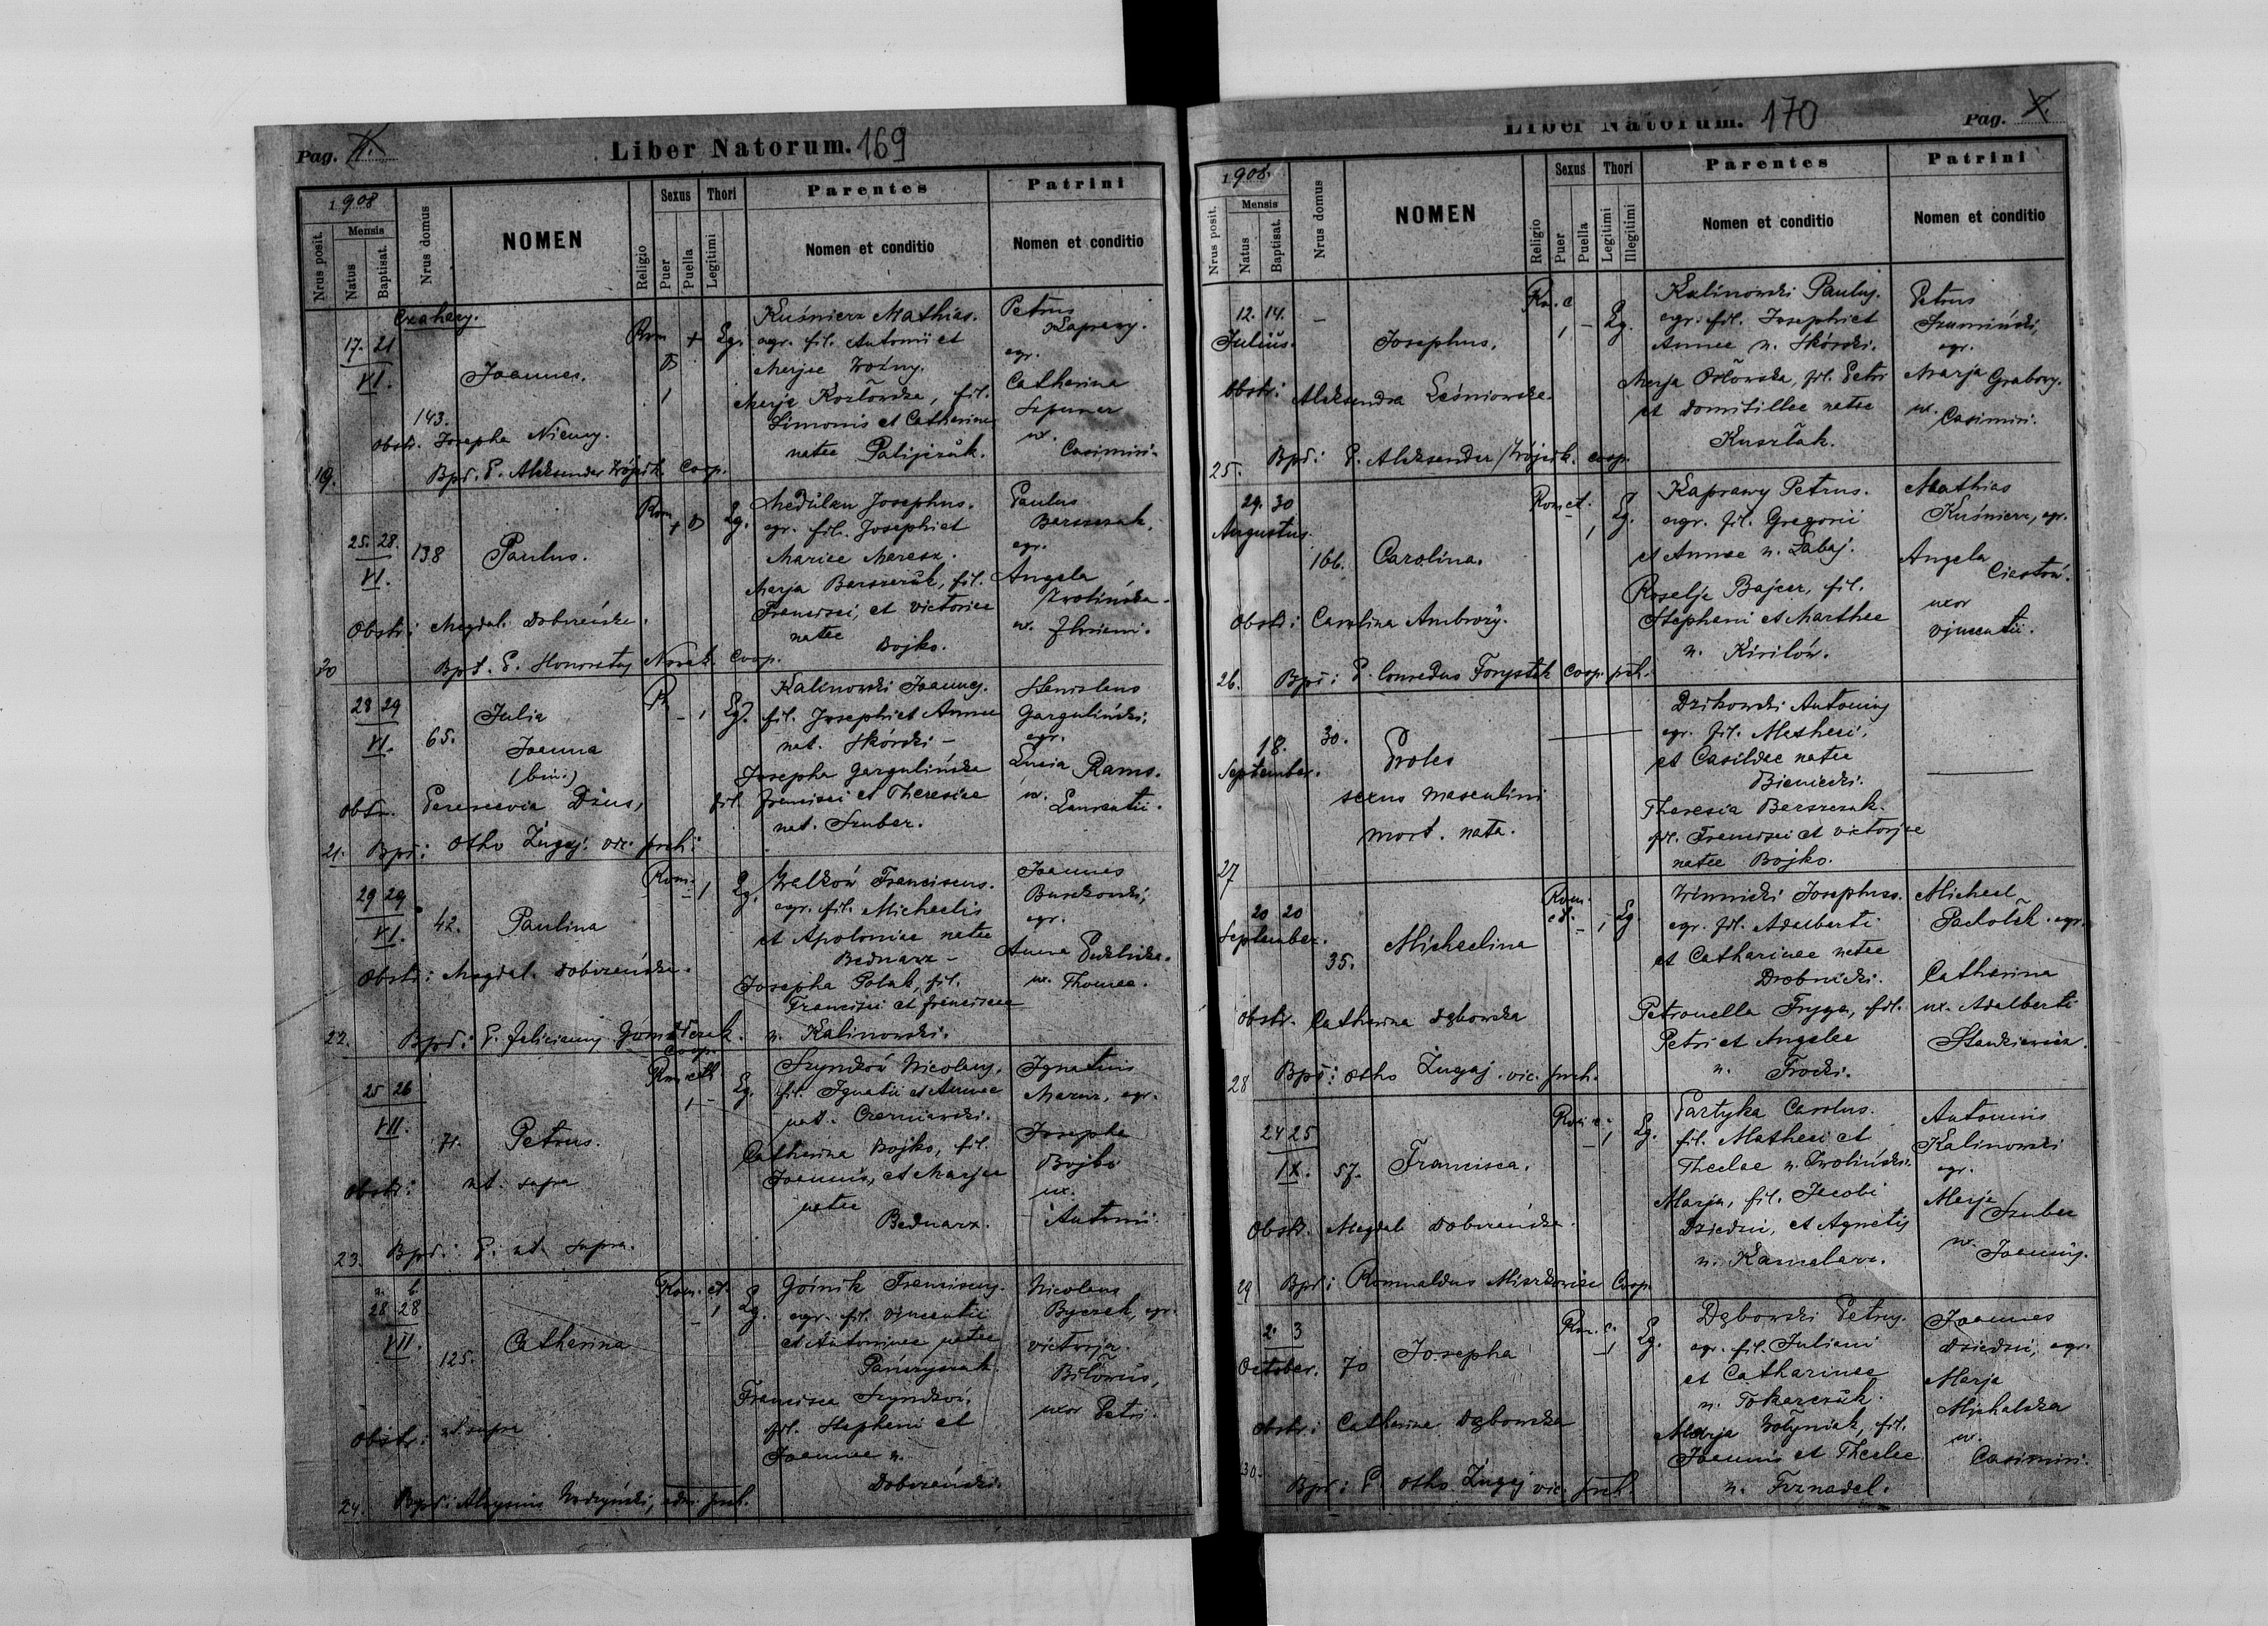 Pag.
Liber Natorum. 169
1908
Nrus posit.
Mensis
Natus
Baptisat.
Nrus domus
NOMEN
Religio
Sexus
Puer
Puella
Thori
Legitimi
Parentes
Nomen et conditio
Patrini
Nomen et conditio
17. 21
VI.
143.
Joannes.
Rom
Lg.
Kuśnierz Mathias.
agr. fil. Antonii et
Marjae Woźny.
Marja Kozłowska, fil.
Simonis et Catharinae
natae
Petrus
Kaprawy.
agr.
Catharina
ux.
Casimiri.
Obstr. Josepha Niemy.
19.
Bpt. P. Aleksander Wójcik Coop.
25. 28.
VI.
138
Paulus.
Rom
Lg.
Medulan Josephus.
agr. fil. Josephi et
Mariae
Marja Barszczuk, fil.
Francisci, et Victoriae
natae Bojko.
Paulus
Barszczak.
agr.
Angela
Zwolińska.
ux.
Obstr: Magdal. Dobrzańska.
20
Bpt. P. Honoratus Nowak Coop.
28 29
VI.
65.
Julia
Joanna
(bin.)
R
Lg.
Kalinowski Joannes.
fil. Josephi et Annae
nat. Skórski –
Josepha Gargulińska
fil. Francisci et Theresiae
nat. Szuber.
Stanislaus
Garguliński,
agr.
Lucia Rams.
ux.
Laurentii.
Obstr. Dzius,
21.
Bpt: Otho Zugaj. vic. prch:
29 29
VI.
42.
Paulina
Rom.
Lg.
Walków Franciscus.
agr. fil. Michaelis
et Apoloniae natae
Bednarz –
Josepha Polak, fil.
Francisci et Franciscae
n. Kalinowski.
Joannes
agr.
Anna
ux. Thomae.
Obstr: Magdal. Dobrzańska.
22.
Bpt: P. Felicianus
Coop.
25 26
VII.
71.
Petrus.
Rom. cth
Lg.
Szynków Nicolaus,
fil. Ignatii et Annae
nat. Czerniawski.
Catharina Bojko, fil.
Joannis, et Marjae
natae
Bednarz.
Ignatius
Mazur, agr.
Josepha
Bojko
ux.
Antonii.
Obstr: ut. supra
23.
Bpt.: P. ut. supra.
28 28
VII.
125.
Catharina
Rom. ct.
Lg.
Górnik Franciscus.
agr. fil. Vincentii
et Antoninae natae
Francisca Szynków,
fil. Stephani et
Joannae n.
Dobrzański.
Nicolaus
Byczek, agr.
Victorja.
uxor Petri.
Obstr: ut supra
24.
Bpt: Aloysius adm. prch.
Liber Natorum. 170
Pag.
1908.
Nrus posit.
Mensis
Natus
Baptisat.
Nrus domus
NOMEN
Religio
Sexus
Puer
Puella
Thori
Legitimi
Illegitimi
Parentes
Nomen et conditio
Patrini
Nomen et conditio
12. 14.
Julius.
–
Josephus.
Rm. c
Lg.
Kalinowski Paulus.
agr: fil. Josephi et
Annae n. Skórski.
Marja Orłowska, fil. Petri
et Domitillae natae
Kusztak.
Petrus
Szumiński,
agr.
Marja Grabowy.
ux.
Casimiri.
Obstr: Aleksandra Leśniowska.
25.
Bpt: P. Aleksander Wójcik. coop.
29. 30
Augustus.
166.
Carolina.
Rom. ct.
Lg.
Kaprawy Petrus.
agr. fil. Gregorii
et Annae n. Zabaj.
Rozalja Bajcar, fil.
Stephani et Marthae
n. Kirilów.
Mathias
Kuśnierz, agr.
Angela
uxor
Vincentii.
Obstr: Carolina Ambroży.
26.
Bpt: P. Conradus Forystek Coop. prch.
18.
September.
30.
Proles
sexus masculini
mort. nata.
Dzikowski Antonius
agr. fil. Mathaei,
et Casildae natae
Bieniecki.
Theresia Barszczak.
fil. Francisci et Victorjae
natae Bojko.
27
20 20
September.
35.
Michaelina
Rom.
ct.
Lg.
Winnicki Josephus.
agr. fil. Adalberti
et Catharinae natae
Drobnicki.
Petronella Fryga, fil.
Petri et Angelae
n. Trocki.
Michael
Pachołek. agr.
Catharina
ux. Adalberti
Stankiewicz.
Obstr. Catharina Dąbowska
28
Bpt: Otho Zugaj. vic. prch.
24 25
IX.
57.
Francisca.
Lg.
Partyka Carolus.
fil. Mathaei et
Theclae n. Zwoliński.
Marja, fil. Jacobi
Dziedzic, et Agnetis
n.
Antonius
Kalinowski
agr.
Marja
Szuber
ux.
Joannis.
Obstr. Magdal. Dobrzańska.
29
Bpt: Romualdus Coop.
2. 3
October.
70
Josepha
Rm. c.
Lg.
Dąbowski Petrus.
agr. fil. Juliani
et Catharinae
n. Tokarczuk.
Marja Wołyniak, fil.
Joannis et Theclae
n. Trznadel.
Joannes
Dziedzic, agr.
Marja
Michalska
ux.
Casimiri.
Obstr: Catharina Dąbowska
30.
Bpt: P. Otho Zugaj vic. prch.